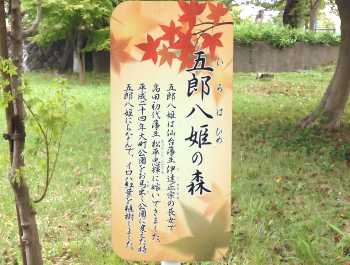 五郎八姫の森
いろはひめ
五郎八姫は仙台藩主伊達正宗の長女で
高田初代藩主松平忠輝に嫁いできました。
平成二十四年大町公園をお馬出し公園に変えた時
五郎八姫にちなんで、イロハ紅葉を植樹しました。